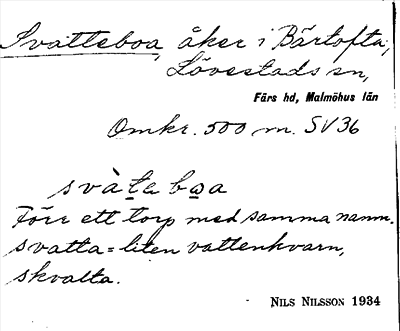 Svatteboa, åker i Bärtofta,
Lövestads sn,
Färs hd, Malmöhus län
Omkr. 500 m. SV 36
svàtebo̲a
Förr ett torp med samma namn.
svatta = liten vattenkvarn,
skvalta.
NILS NILSSON 1934